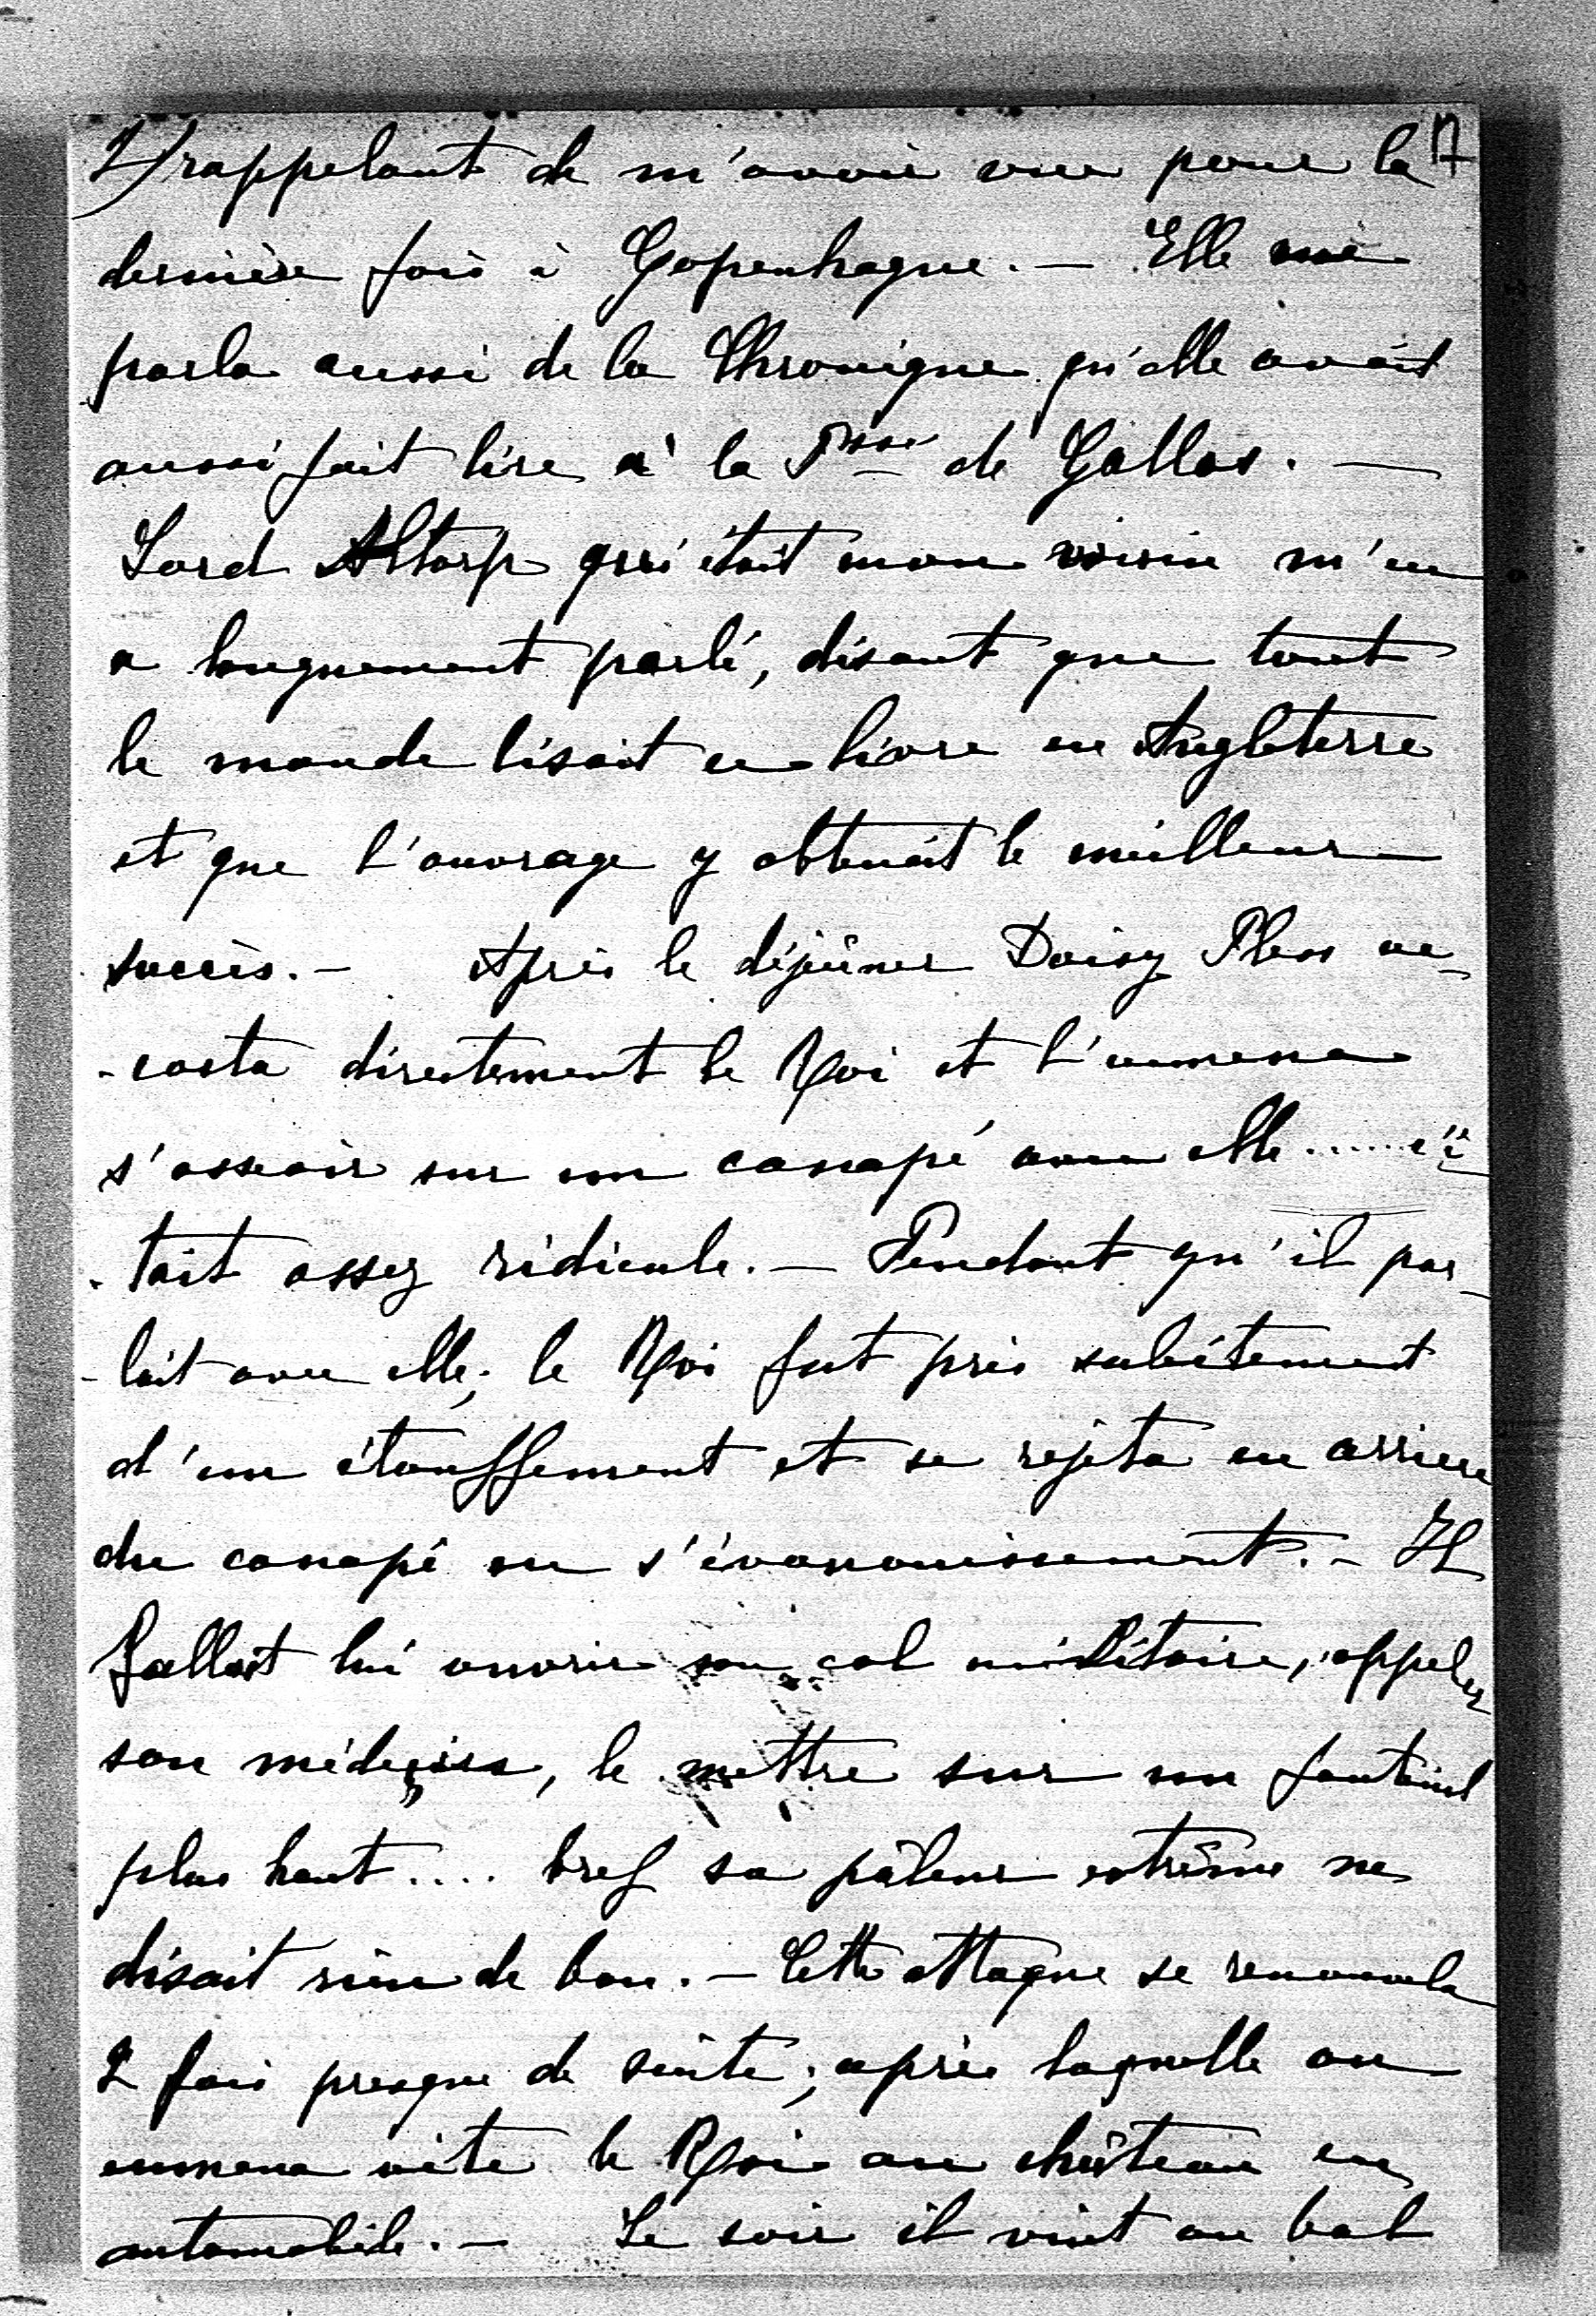 2) rappelant de m'avoir vue pour la 17
dernière fois à Copenhague. — Elle me
parla aussi de la Chronique qu'elle avait
aussi fait lire à la Psse de Galles. —
Lord Altorp qui était mon voisin m'en
a longuement parlé, disant que tout
le monde lisait ce livre en Angleterre
et que l'ouvrage y obtenait le meilleur
succès. — Après le déjeûner Daisy Pless ac-
-costa directement le Roi et l'emmena
s'asseoir sur un canapé avec elle ...... c'é-
-tait assez ridicule. — Pendant qu'il par-
-lait avec elle, le Roi fut pris subitement
d'un étouffement et se rejeta en arriere
du canapé en s'évanouissement. — Il
fallait lui ouvrir son col militaire, appeler
son médecin, le mettre sur un fauteuil
plus haut .... bref sa pâleur extrême ne
disait rien de bon. — Cette attaque se renouvela
2 fois presque de suite; après laquelle on
emmena vite le Roi au château en
automobile. — Le soir il vint au bal